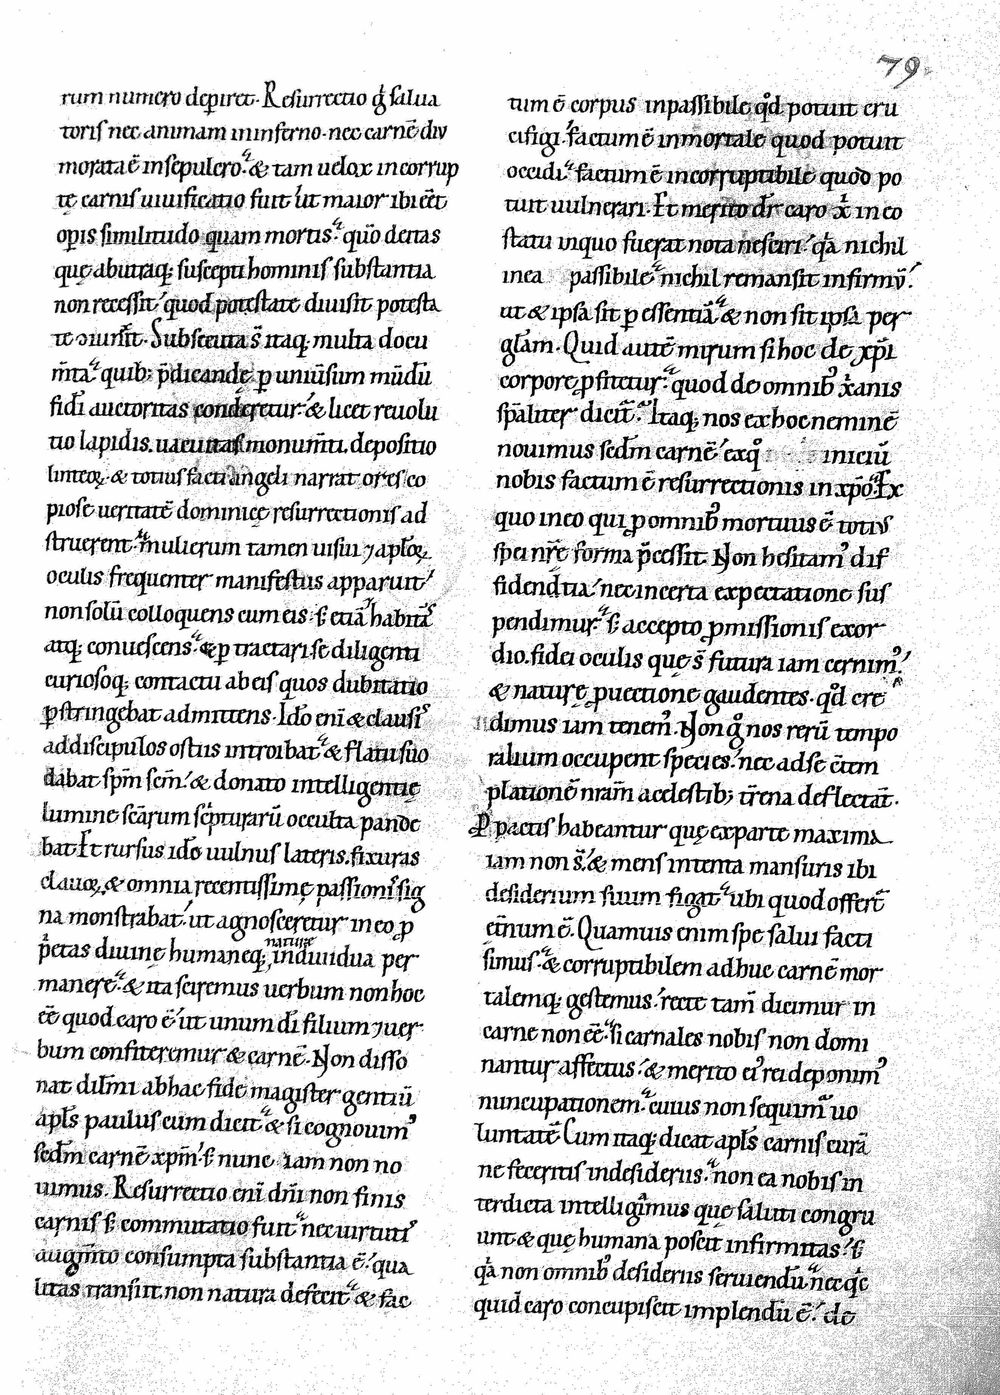 79
rum numero depiret. Resurrectio g̊ salua
toris nec animam ininferno. nec carnē diu
morata ē insepulcro. & tam uelox incorrup
tę carnis uiuificatio fuit ut maior ibi eēt
opis similitudo quam mortis. quō deitas
quę abutraq; suscepti hominis substantia
non recessit quod potestate diuisit potesta
te ɔiunx̄it. Subsecuta s̄ itaq; multa docu
m̄ta quib; p̄dicandę p uniūsum mūdū
fidi auctoritas conderetur & licet reuolu
tio lapidis. uacuitas monum̄ti. depositio
linteoꝝ. & totius facti angeli narratores co
piose ueritatē dominicę resurrectionis ad
struerent. mulierum tamen uisui ⁊ aplōꝝ
oculis frequenter manifestus apparuit
non solū colloquens cum eis. s̄ etiā habitās
atq; conuescens. & p tractari se diligenti
curiosoq; contactu ab eis quos dubitatio
ꝑstringebat admittens. Ido enī & clausis
addiscipulos ostiis introibat & flatu suo
dabat spm̄ scm̄. & donato intelligentię
lumine scārum scͥpturarū occulta pande
bat Et rursus ido uulnus lateris. fixuras
clauoꝝ. & omnia recentissimę passionis sig
na monstrabat. ut agnosceretur in eo ꝓ
p̄etas diuinę humaneq; naturę indiuidua per
manere. & ita sciremus uerbum non hoc
eē quod caro ē ut unum dī filium ⁊ uer
bum confiteremur & carnē. Non disso
nat dilm̄i abhac fide magister gentiū
apl̄s paulus cum dicit & si cognouimꝰ
secdm carnē xpm̄. s̄ nunc iam non no
uimus. Resurrectio enī dn̄i non finis
carnis s̄ commutatio fuit nec uirtutis
augm̄to consumpta substantia ē. qua
litas transiit. non natura defecit & fac
tum ē corpus inpassibile qd̄ potuit cru
cifigi. factum ē inmortale quod potuit
occidi. factum ē incorruptibile quod po
tuit uulnerari. Et merito dr̄ caro xͥ in eo
statu inquo fuerat nota nesciri. qͣa nichil
in ea passibile nichil remansit infirmū.
ut & ipsa sit p essentiā & non sit ipsa per
glām. Quid autē mirum si hoc de xpi
corpore ꝓfitetur. quod de omnibꝰ xͥanis
spāliter dicit̄. Itaq; nos ex hoc neminē
nouimus secdm carnē ex qͦ iniciū
nobis factum ē resurrectionis in xpō. Ex
quo in eo qui ꝓ omnibꝰ mortuus ē totiꝰ
spei nr̄ę forma p̄cessit. Non hesitamꝰ dif
fidendtia. nec incerta expectatione sus
pendimur. s̄ accepto ꝓmissionis exor
dio. fidei oculis quę s̄ futura iam cernimꝰ
& naturę ꝓuectione gaudentes. qd̄ cre
dimus iam tenemꝰ. Non g̊ nos rerū tempo
ralium occupent species. nec ad se cōtem
platione nram̄ acelestib; tr̄rena deflectat.
P pactis habeantur quę ex parte maxima
iam non s̄. & mens intenta mansuris ibi
desiderium suum figat. ubi quod offert̄
etn̄um ē. Quamuis enim spe salui facti
simus. & corruptibilem adhuc carnē mor
talemq; gestemus. recte tam̄ dicimur in
carne non eē si carnales nobis non domi
nantur affectus. & merito eiꝰ rei deponimꝰ
nuncupationem. cuius non sequimur uo
luntatē Cum itaq; dicat apl̄s carnis curā
ne feceritis indesideriis. non ea nobis in
terdicta intelligimus quę saluti congru
unt & quę humana poscit infirmitas. s̄
qͣa non omnibꝰ desideriis seruiendū nec qͥc
quid caro concupiscit implendū ē. de